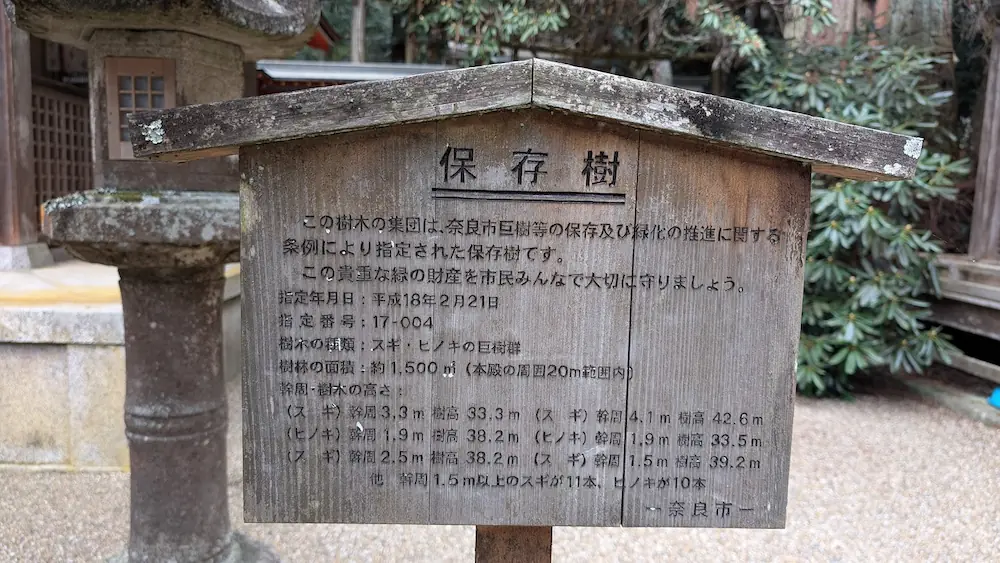 保存樹
この樹木の集団は、奈良市巨樹等の保存及び緑化の推進に関する
条例により指定された保存樹です。
この貴重な緑の財産を市民みんなで大切に守りましょう。
指定年月日：平成18年2月21日
指定番号：17-004
樹木の種類：スギ・ヒノキの巨樹群
樹林の面積：約1,500㎡（本殿の周囲20m範囲内）
幹周・樹木の高さ：
（スギ）幹周3.3m 樹高33.3m（スギ）幹周4.1m 樹高42.6m
（ヒノキ）幹周1.9m 樹高38.2m（ヒノキ）幹周1.9m 樹高33.5m
（スギ）幹周2.5m 樹高38.2m（スギ）幹周1.5m 樹高39.2m
他 幹周1.5m以上のスギが11本、ヒノキが10本
ー奈良市ー